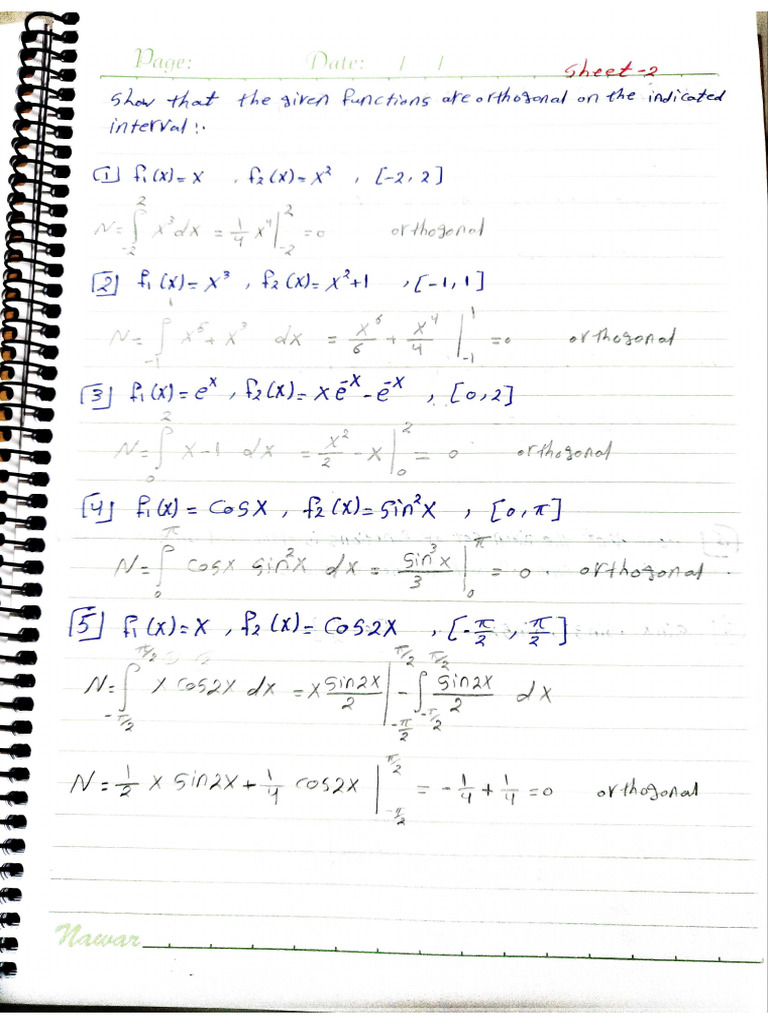 Page: Date: / /
Sheet-2
Show that the given functions are orthogonal on the indicated
interval:.
[1] f₁(x)=x , f₂(x)=x² , [-2, 2]
N=∫₋₂² x³dx = 1/4 x⁴|₋₂² =0 orthogonal
[2] f₁(x)=x³ , f₂(x)=x²+1 , [-1, 1]
N=∫₋₁¹ x⁵+x³ dx = x⁶/6 + x⁴/4 |₋₁¹ =0 orthogonal
[3] f₁(x)=eˣ , f₂(x)=xe⁻ˣ-e⁻ˣ , [0, 2]
N=∫₀² x-1 dx = x²/2 -x|₀² = 0 orthogonal
[4] f₁(x)=cosx , f₂(x)=sin²x , [0, π]
N=∫₀^π cosx sin²x dx = sin³x/3 |₀^π = 0 . orthogonal .
[5] f₁(x)=x , f₂(x)=cos2x , [-π/2 , π/2]
N=∫_{-π/2}^{π/2} x cos2x dx = x sin2x/2 |_{-π/2}^{π/2} - ∫_{-π/2}^{π/2} sin2x/2 dx
N=1/2 x sin2x+1/4 cos2x |_{-π/2}^{π/2} = -1/4+1/4=0 orthogonal
Nawar